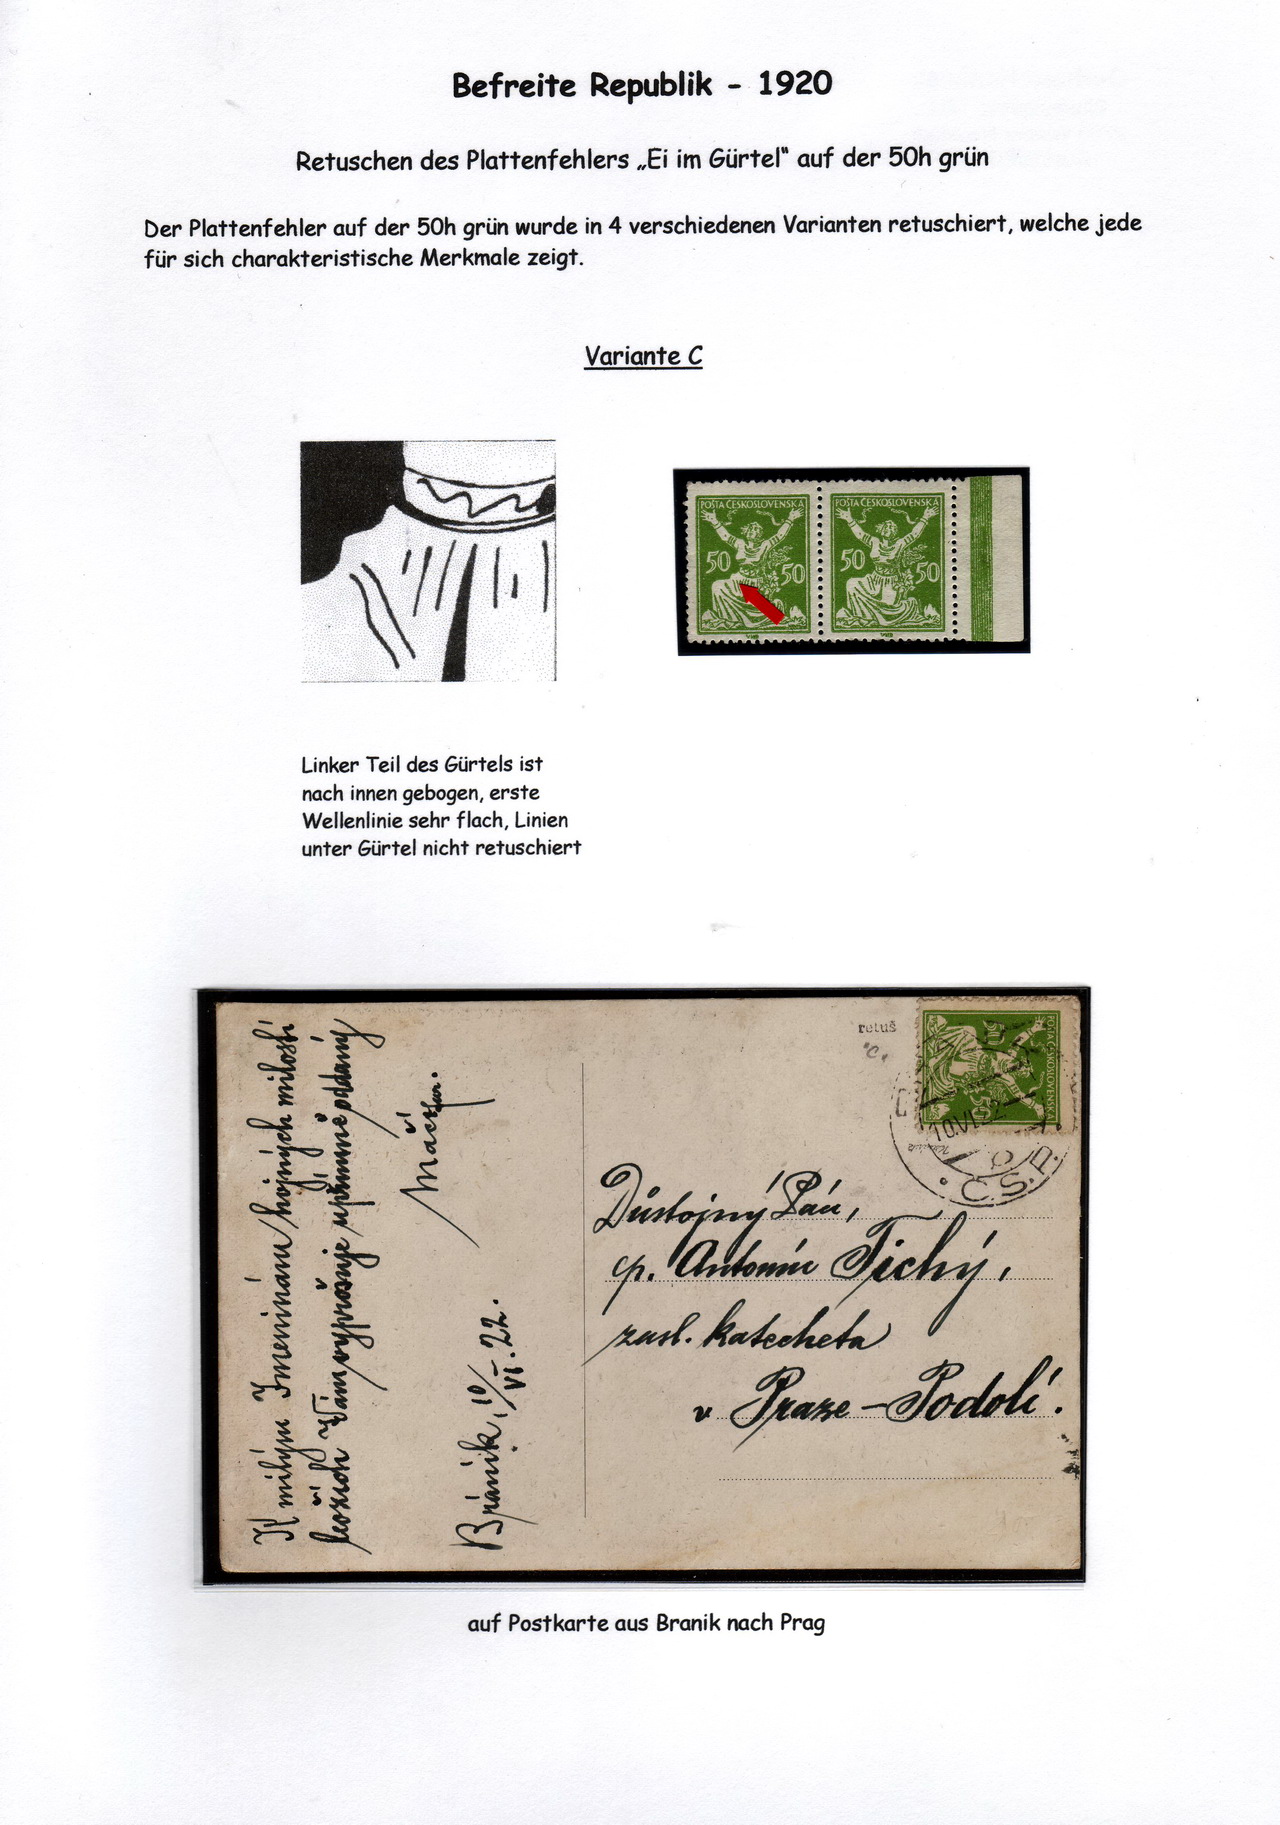 Befreite Republik - 1920
Retuschen des Plattenfehlers „Ei im Gürtel“ auf der 50h grün
Der Plattenfehler auf der 50h grün wurde in 4 verschiedenen Varianten retuschiert, welche jede
für sich charakteristische Merkmale zeigt.
Variante C
POŠTA ČESKOSLOVENSKÁ
50
50
POŠTA ČESKOSLOVENSKÁ
50
50
Linker Teil des Gürtels ist
nach innen gebogen, erste
Wellenlinie sehr flach, Linien
unter Gürtel nicht retuschiert
K milým Jmeninám hojných milostí
Božích Vám vyprošuje upřímně oddaný
Bráník, 10/VI. 22.
retuš
"C"
POŠTA ČESKOSLOVENSKÁ
50
50
10.VI.22
Č.S.P.
Důstojný Pán,
cp. Antonín Tichý,
zasl. katecheta
v Praze - Podolí.
auf Postkarte aus Branik nach Prag